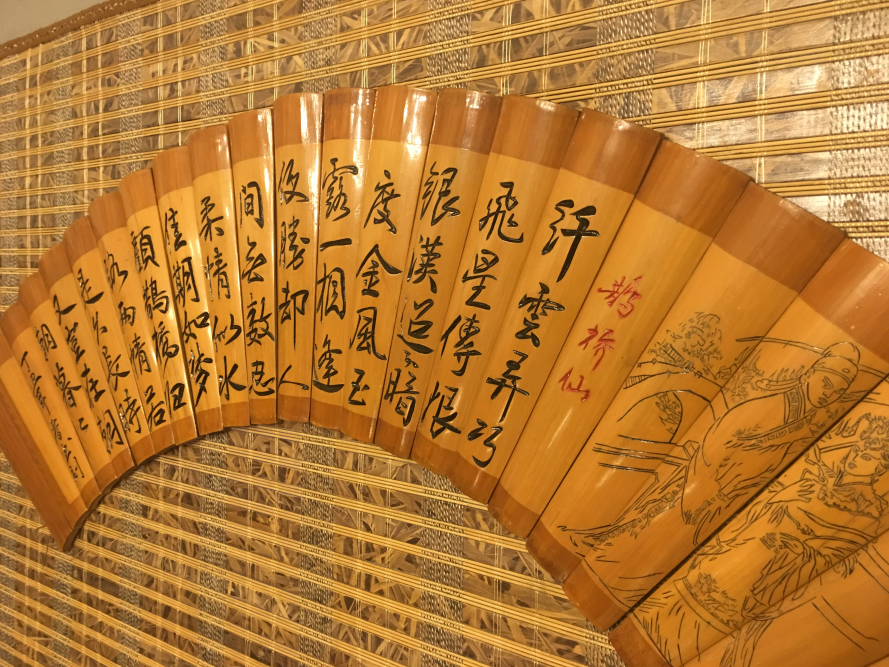 鹊桥仙
纤雲弄巧
飛星傳恨
銀漢迢々暗
度金風玉
露一相逢
便勝却人
間无數忍
柔情似水
佳期如梦
顧鵲橋
路兩情若
是久長時
又豈在朝
朝暮々